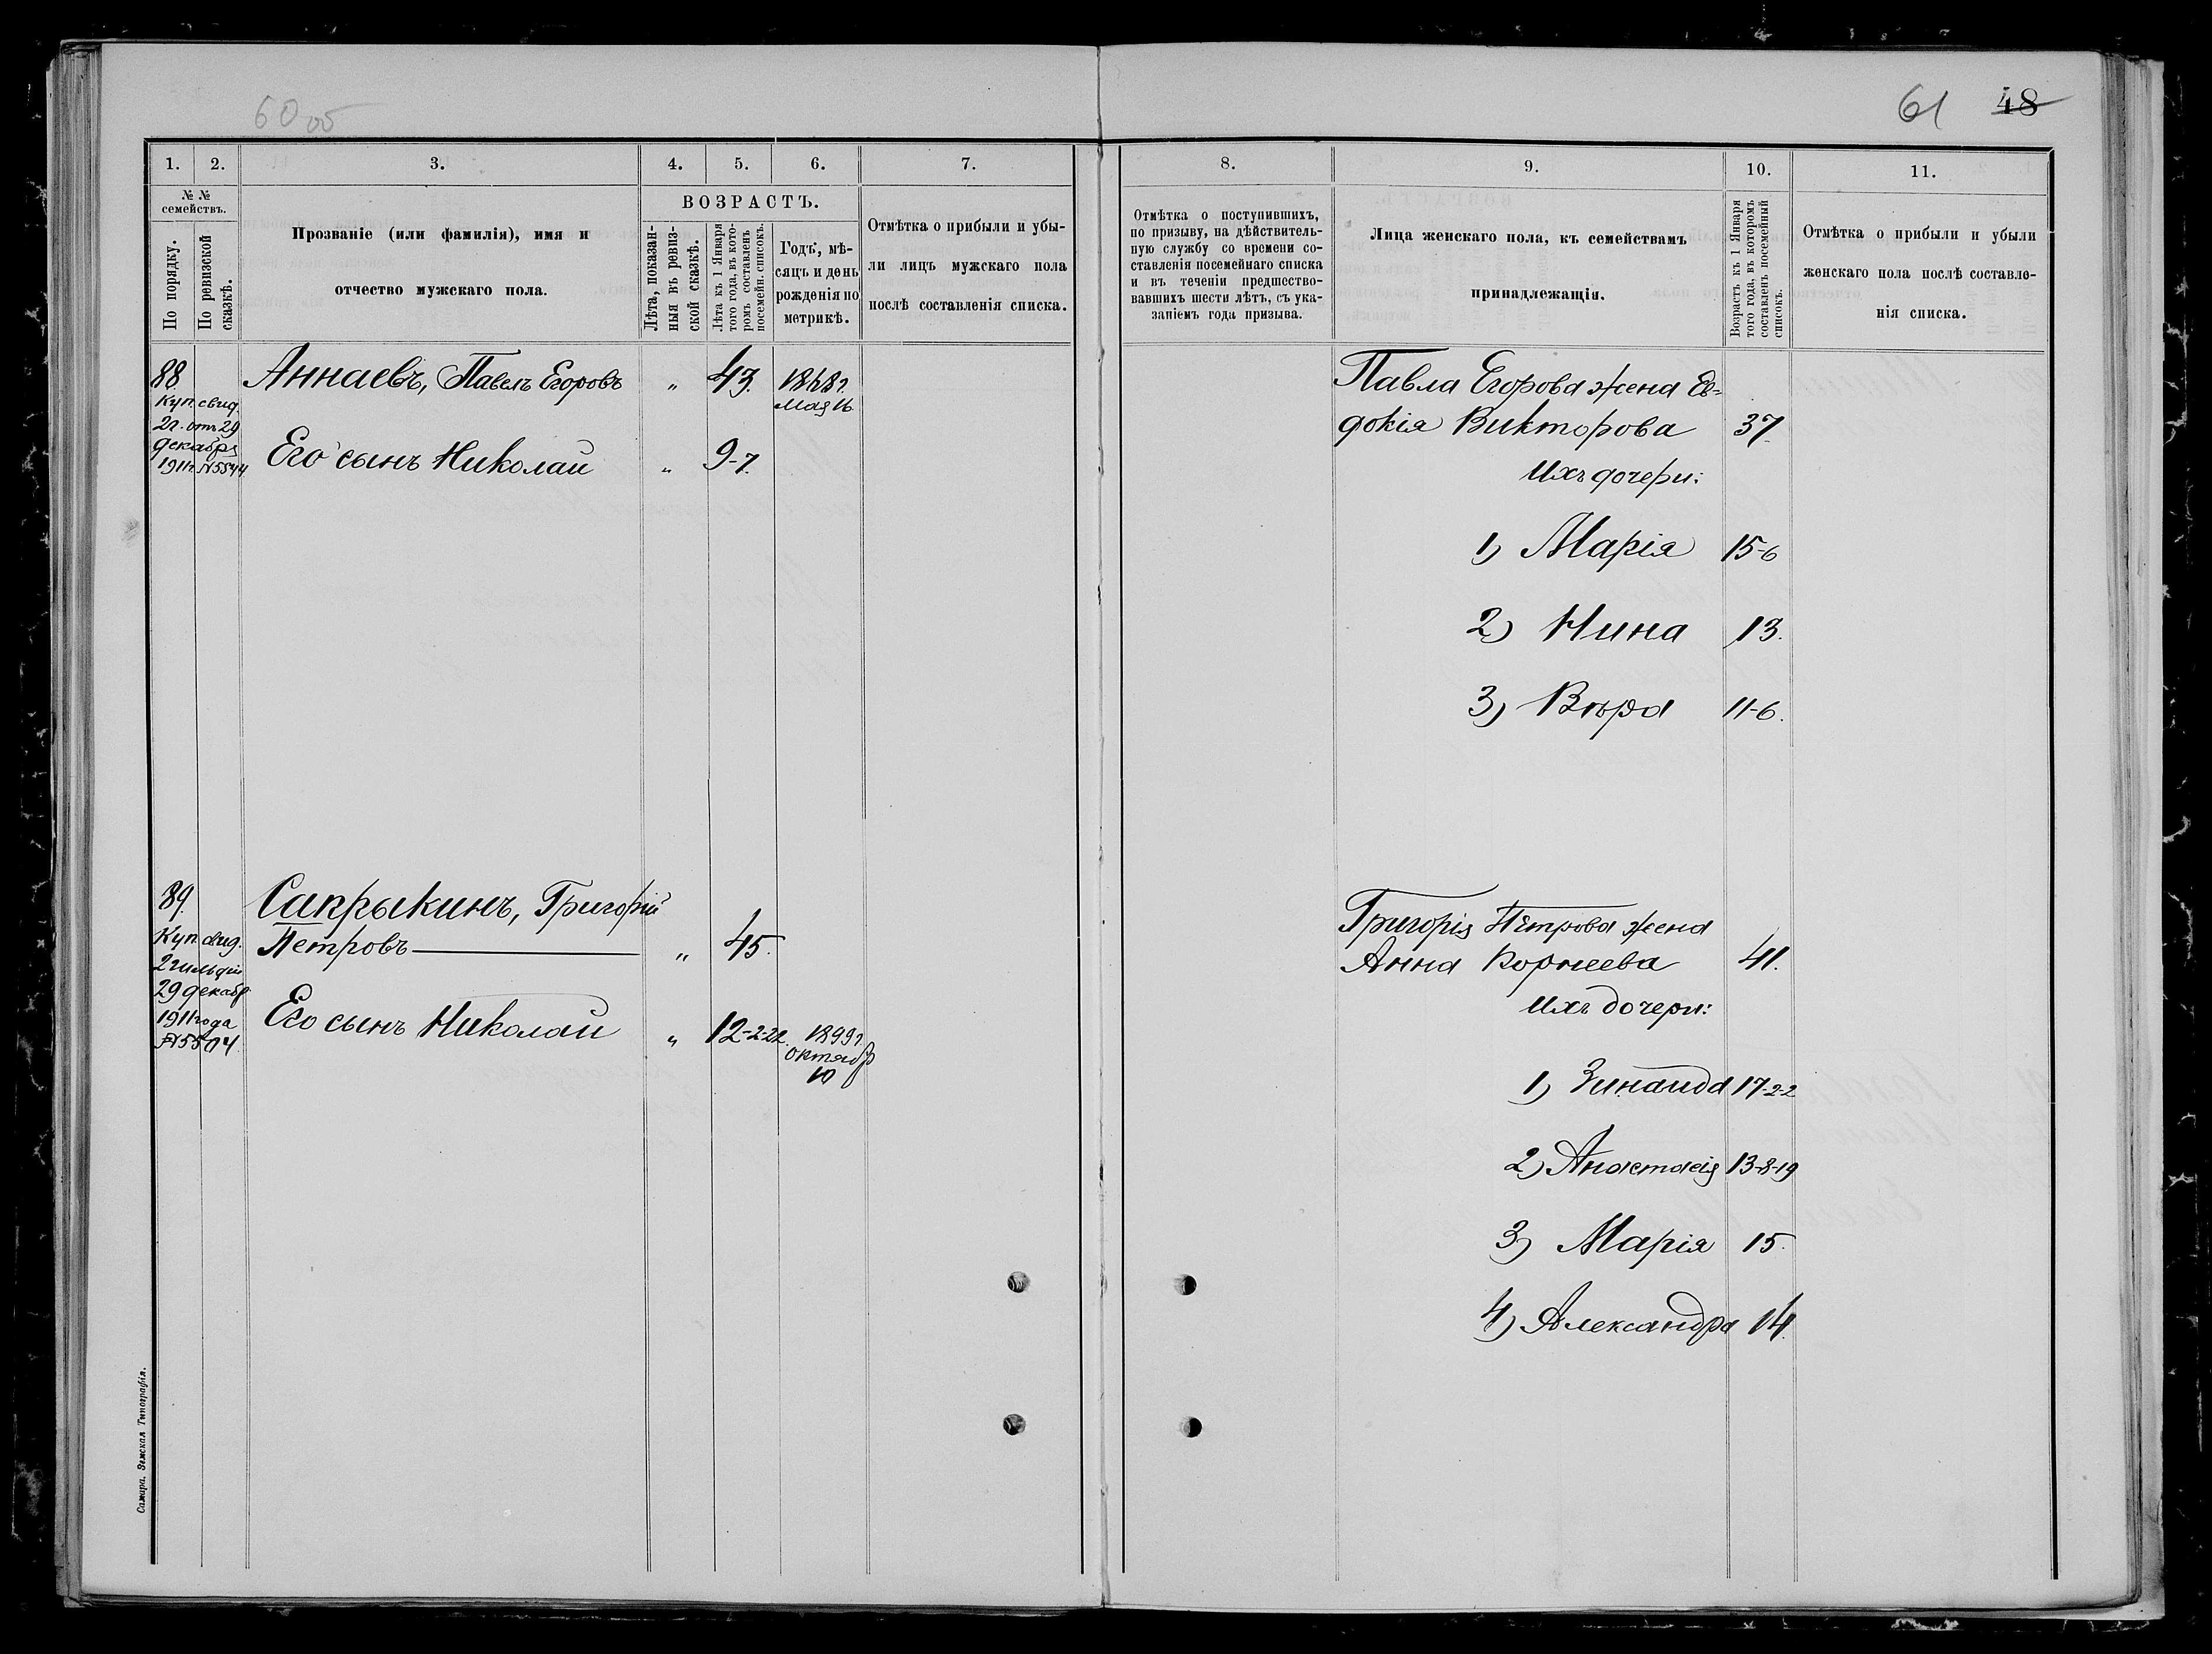 60 об
61 48
1. 2. 3. 4. 5. 6. 7.
№ № семействъ.
По порядку.
По ревизской сказкѣ.
Прозваніе (или фамилія), имя и
отчество мужскаго пола.
ВОЗРАСТЪ.
Лѣта, показан-
ныя въ ревиз-
ской сказкѣ.
Лѣта къ 1 Января
того года, въ кото-
ромъ составленъ
посемейн. списокъ.
Годъ, мѣ-
сяцъ и день
рожденія по
метрикѣ.
Отмѣтка о прибыли и убы-
ли лицъ мужскаго пола
послѣ составленія списка.
88
Куп. свид.
2г. отъ 29
декабря
1911г. №5544
Аннаевъ, Павелъ Егоровъ „ 43.
Мая 16
Его сынъ Николай „ 9-7.
89.
Куп. свид.
2 гильдіи
29 декабр.
1911 года
№5504
Сапрыкинъ, Григорій
Петровъ „ 45.
Его сынъ Николай „ 12-2-22. 1899г.
октябр
10
Самара. Земская Типографія.
8. 9. 10. 11.
Отмѣтка о поступившихъ,
по призыву, на дѣйствитель-
ную службу со времени со-
ставленія посемейнаго списка
и въ теченіи предшество-
вавшихъ шести лѣтъ, съ ука-
заніемъ года призыва.
Лица женскаго пола, къ семействамъ
принадлежащія.
Возрастъ къ 1 Января
того года, въ которомъ
составленъ посемейный
списокъ.
Отмѣтка о прибыли и убыли
женскаго пола послѣ составле-
нія списка.
Павла Егорова жена Ев-
докія Викторова 37.
Ихъ дочери:
1) Марія 15-6
2) Нина 13.
3) Вѣра 11-6.
Григорія Петрова жена
Анна Корнеева 41.
Ихъ дочери:
1) Зинаида 17-2-2
2) Анастасія 13-8-19
3) Марія 15.
4) Александра 14.